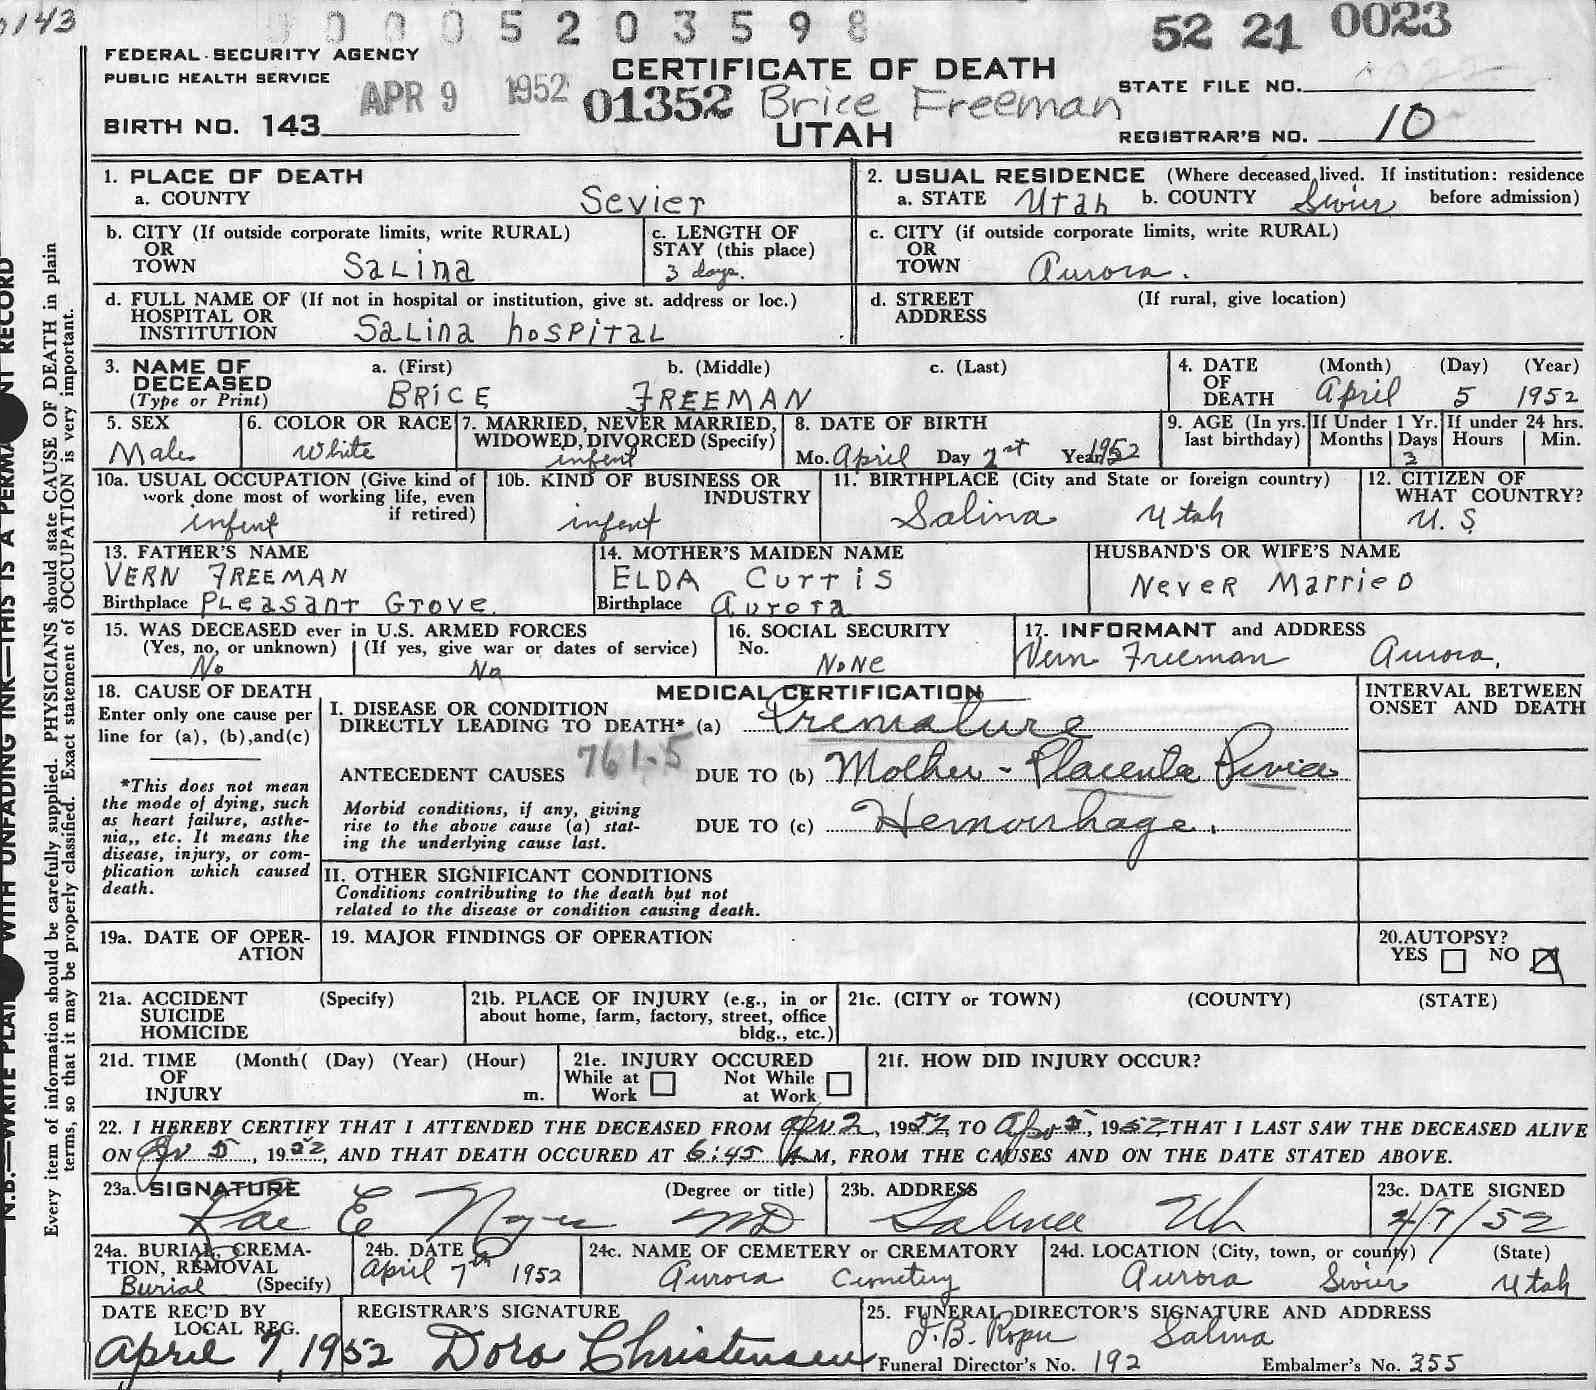 143
0005203598
52 21 0023
FEDERAL SECURITY AGENCY
PUBLIC HEALTH SERVICE
APR 9 1952
CERTIFICATE OF DEATH
STATE FILE NO.
01352 Brice Freeman
BIRTH NO. 143
UTAH
REGISTRAR'S NO. 10
1. PLACE OF DEATH
a. COUNTY Sevier
2. USUAL RESIDENCE (Where deceased lived. If institution: residence before admission)
a. STATE Utah b. COUNTY Sevier
b. CITY (If outside corporate limits, write RURAL)
OR
TOWN Salina
c. LENGTH OF
STAY (this place)
3 days.
c. CITY (if outside corporate limits, write RURAL)
OR
TOWN Aurora.
d. FULL NAME OF (If not in hospital or institution, give st. address or loc.)
HOSPITAL OR
INSTITUTION Salina hospital
d. STREET (If rural, give location)
ADDRESS
3. NAME OF a. (First) b. (Middle) c. (Last)
DECEASED
(Type or Print) BRICE FREEMAN
4. DATE (Month) (Day) (Year)
OF
DEATH April 5 1952
5. SEX
Male
6. COLOR OR RACE
White
7. MARRIED, NEVER MARRIED,
WIDOWED, DIVORCED (Specify)
infent
8. DATE OF BIRTH
Mo. April Day 2st Year 1952
9. AGE (In yrs. last birthday)
If Under 1 Yr. Months Days
3
If under 24 hrs. Hours Min.
10a. USUAL OCCUPATION (Give kind of
work done most of working life, even
if retired)
infent
10b. KIND OF BUSINESS OR
INDUSTRY
infent
11. BIRTHPLACE (City and State or foreign country)
Salina Utah
12. CITIZEN OF
WHAT COUNTRY?
U. S
13. FATHER'S NAME
VERN FREEMAN
Birthplace Pleasant Grove.
14. MOTHER'S MAIDEN NAME
ELDA Curtis
Birthplace Aurora
HUSBAND'S OR WIFE'S NAME
Never Married
15. WAS DECEASED ever in U.S. ARMED FORCES
(Yes, no, or unknown) (If yes, give war or dates of service)
No No
16. SOCIAL SECURITY
No.
NoNe
17. INFORMANT and ADDRESS
Vern Freeman Aurora,
18. CAUSE OF DEATH
Enter only one cause per
line for (a), (b),and(c)
*This does not mean
the mode of dying, such
as heart failure, asthe-
nia,, etc. It means the
disease, injury, or com-
plication which caused
death.
MEDICAL CERTIFICATION
I. DISEASE OR CONDITION
DIRECTLY LEADING TO DEATH* (a) Premature
761.5
ANTECEDENT CAUSES DUE TO (b) Mother - Placenta Previa
Morbid conditions, if any, giving
rise to the above cause (a) stat-
ing the underlying cause last.
DUE TO (c) Hemorrhage.
INTERVAL BETWEEN
ONSET AND DEATH
II. OTHER SIGNIFICANT CONDITIONS
Conditions contributing to the death but not
related to the disease or condition causing death.
19a. DATE OF OPER-
ATION
19. MAJOR FINDINGS OF OPERATION
20.AUTOPSY?
YES NO
21a. ACCIDENT (Specify)
SUICIDE
HOMICIDE
21b. PLACE OF INJURY (e.g., in or
about home, farm, factory, street, office
bldg., etc.)
21c. (CITY or TOWN) (COUNTY) (STATE)
21d. TIME (Month( (Day) (Year) (Hour)
OF
INJURY m.
21e. INJURY OCCURED
While at Work Not While at Work
21f. HOW DID INJURY OCCUR?
22. I HEREBY CERTIFY THAT I ATTENDED THE DECEASED FROM Apr 2, 1952, TO Apr 5, 1952, THAT I LAST SAW THE DECEASED ALIVE
ON Apr 5, 1952, AND THAT DEATH OCCURED AT 6:45 AM, FROM THE CAUSES AND ON THE DATE STATED ABOVE.
23a. SIGNATURE (Degree or title)
Rae E Noyes MD
23b. ADDRESS
Salina Ut
23c. DATE SIGNED
4/7/52
24a. BURIAL, CREMA-
TION, REMOVAL
Burial (Specify)
24b. DATE
April 7th 1952
24c. NAME OF CEMETERY or CREMATORY
Aurora Cemetery
24d. LOCATION (City, town, or county) (State)
Aurora Sevier Utah
DATE REC'D BY
LOCAL REG.
April 7, 1952
REGISTRAR'S SIGNATURE
Dora Christensen
25. FUNERAL DIRECTOR'S SIGNATURE AND ADDRESS
Salina
Funeral Director's No. 192 Embalmer's No. 355
N.B.—WRITE WITH UNFADING INK—THIS IS A RECORD
Every item of information should be carefully supplied. PHYSICIANS should state CAUSE OF DEATH in plain
terms, so that it may be properly classified. Exact statement of OCCUPATION is very important.